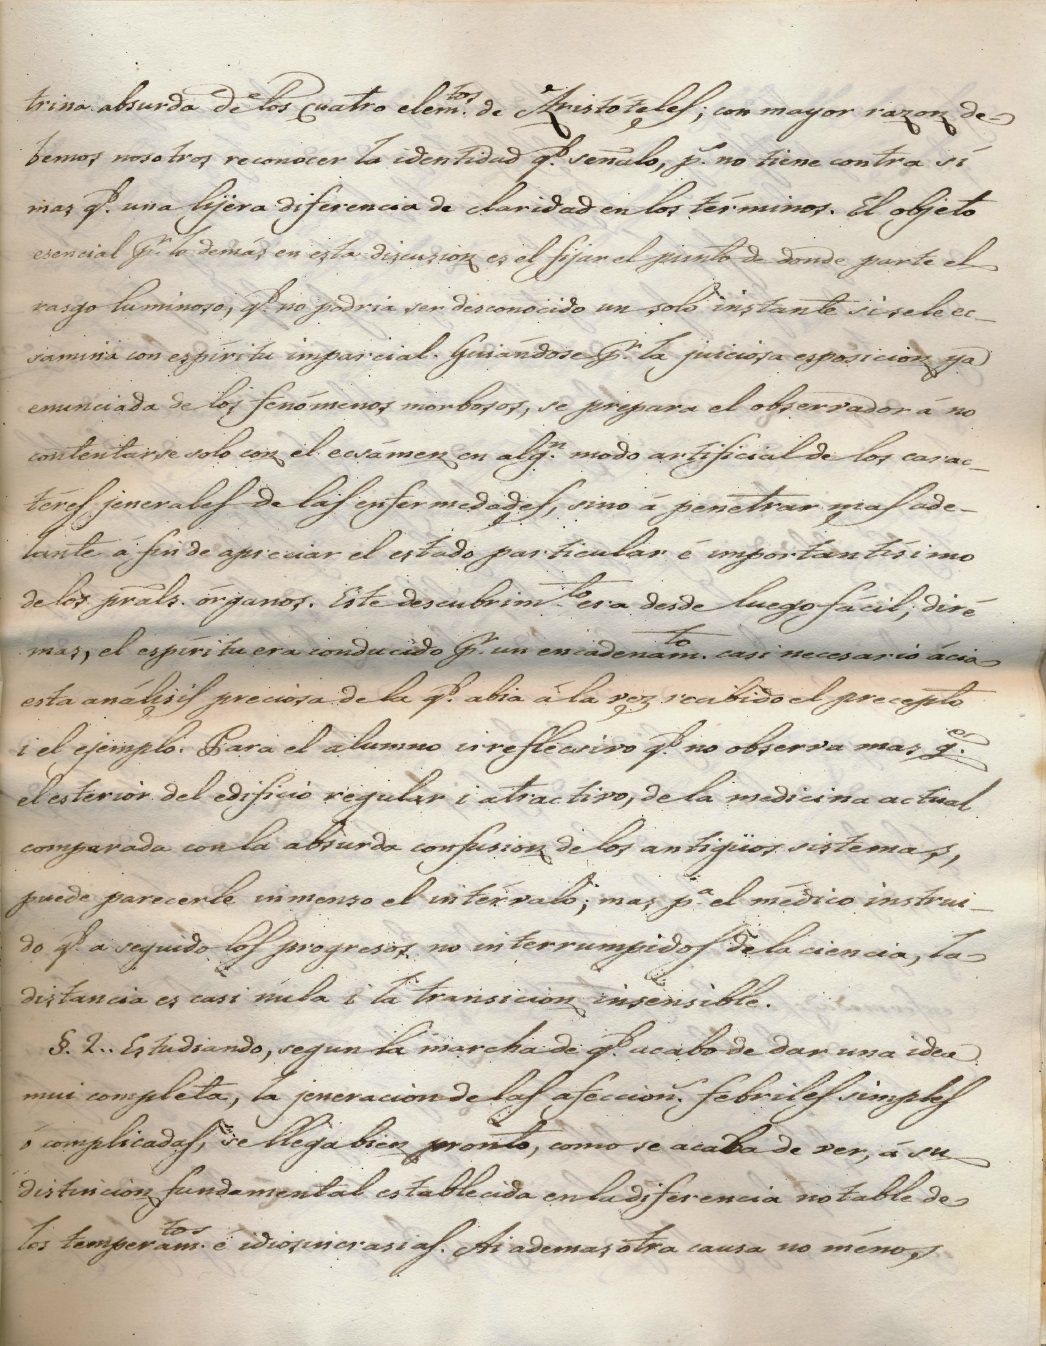 trina absurda de los cuatro elem.tos de Aristóteles; con mayor razon de-
bemos nosotros reconocer la identidad q.e señalo, p.s no tiene contra sí
mas q.e una lijera diferencia de claridad en los términos. El objeto
esencial p.r lo demas en esta discusion es el fijar el punto de donde parte el
rasgo luminoso, q.e no podria ser desconocido un solo instante si se le ec-
samina con espíritu imparcial. Guiándose p.r la juiciosa esposicion ya
enunciada de los fenómenos morbosos, se prepara el observador á no
contentarse solo con el ecsámen en alg.n modo artificial de los carac-
téres jenerales de las enfermedades, sino á penetrar mas ade-
lante á fin de apreciar el estado particular é importantísimo
de los prals. órganos. Este descubrim.to era desde luego fácil; diré
mas, el espíritu era conducido p.r un encadenam.to casi necesario ácia
esta análisis preciosa de la q.e abia á la vez recibido el precepto
i el ejemplo. Para el alumno irreflecsivo q.e no observa mas q.e
el esterior del edificio regular i atractivo, de la medicina actual
comparada con la absurda confusion de los antigüos sistemas,
puede parecerle inmenso el intérvalo; mas p.a el médico instrui-
do q.e a seguido los progresos no interrumpidos de la ciencia, la
distancia es casi nula i la transicion insensible.
§. 2.. Estudiando, segun la marcha de q.e acabo de dar una idea
mui completa, la jeneracion de las afeccion.s febriles simples
ó complicadas, se llega bien pronto, como se acaba de ver, á su
distincion fundamental establecida en la diferencia notable de
los temperam.tos é idiosincrasias. Ai ademas otra causa no ménos